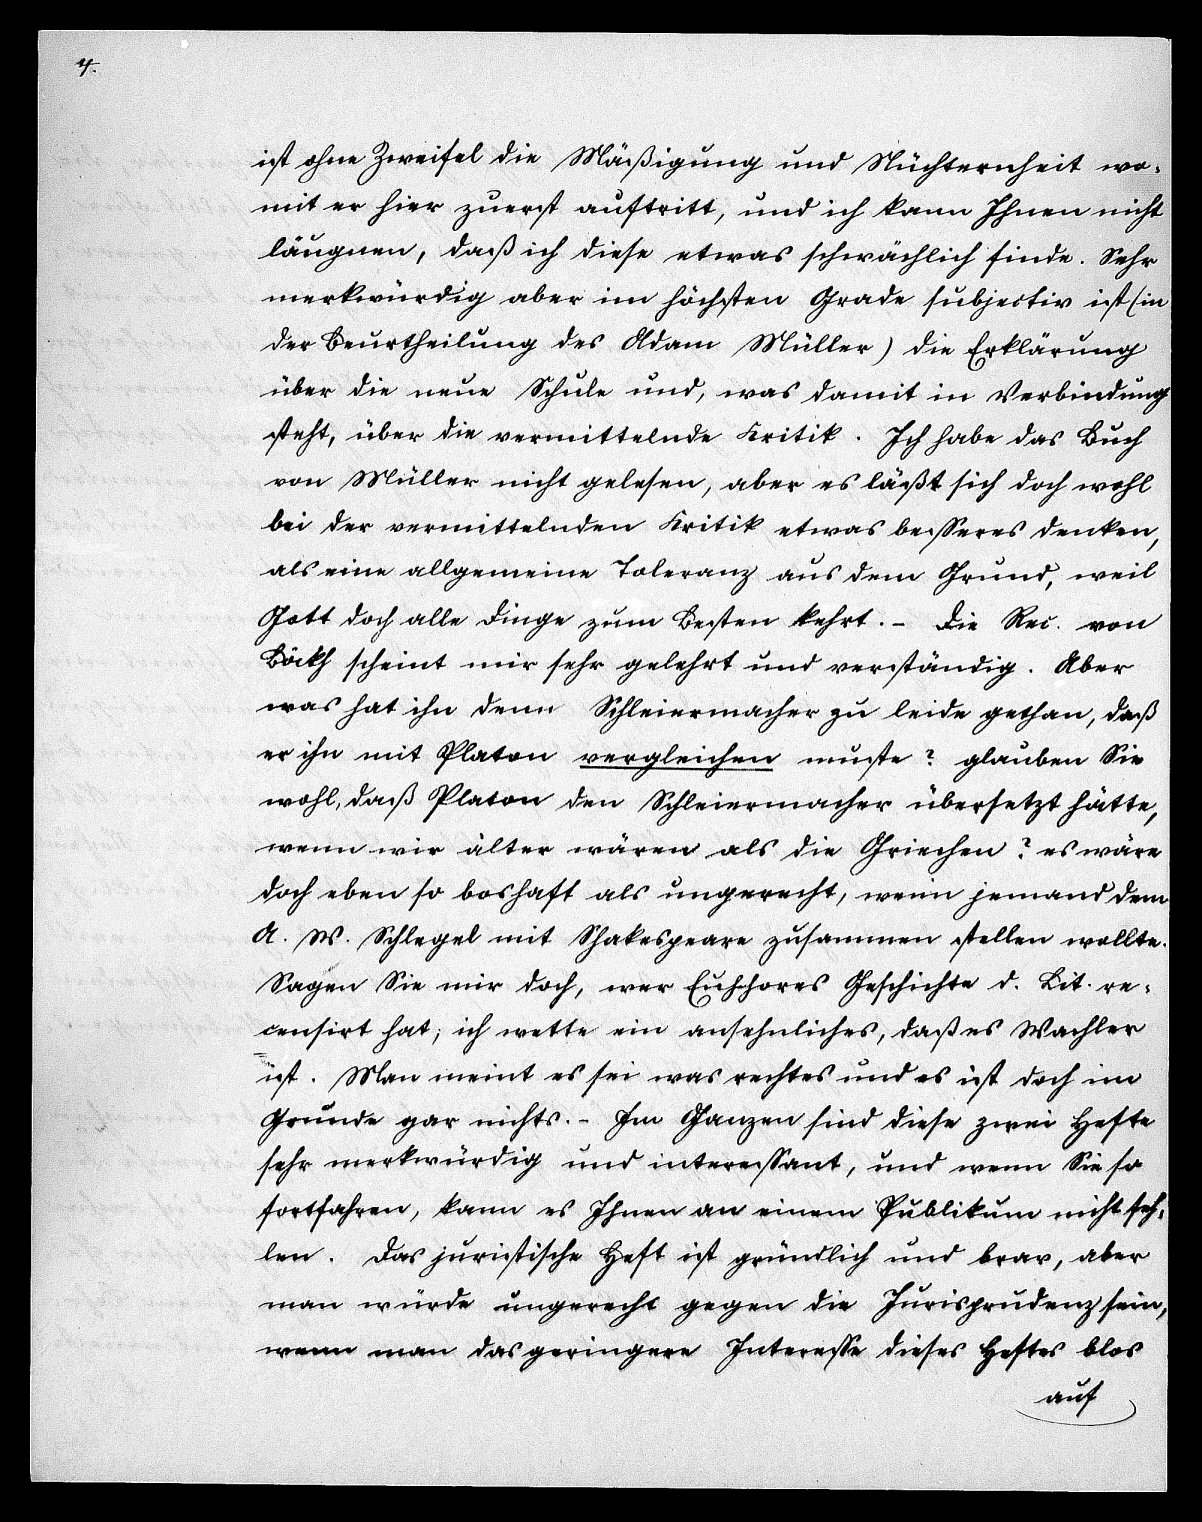 4.
ist ohne Zweifel die Mäßigung und Nüchternheit wo-
mit er hier zuerst auftritt, und ich kann Ihnen nicht
läugnen, daß ich diese etwas schwächlich finde. Sehr
merkwürdig aber im höchsten Grade subjectiv ist (in
der Beurtheilung des Adam Müller) die Erklärung
über die neue Schule und, was damit in Verbindung
steht, über die vermittelnde Kritik. Ich habe das Buch
von Müller nicht gelesen, aber es läßt sich doch wohl
bei der vermittelnden Kritik etwas besseres denken,
als eine allgemeine Toleranz aus dem Grund, weil
Gott doch alle Dinge zum Besten kehrt. – Die Rec. von
Böckh scheint mir sehr gelehrt und verständig. Aber
was hat ihn denn Schleiermacher zu leide gethan, daß
er ihn mit Platon vergleichen muste? glauben Sie
wohl, daß Platon den Schleiermacher übersetzt hätte,
wenn wir älter wären als die Griechen? es wäre
doch eben so boshaft als ungerecht, wenn jemand dem
A. W. Schlegel mit Shakespeare zusammen stellen wollte.
Sagen Sie mir doch, wer Geschichte d. Lit. re-
censirt hat; ich wette ein ansehnliches, daß es Wachler
ist. Man meint es sei was rechtes und es ist doch im
Grunde gar nichts. – Im Ganzen sind diese zwei Hefte
sehr merkwürdig und interessant, und wenn Sie so
fortfahren, kann es Ihnen an einem Publikum nicht feh-
len. Das juristische Heft ist gründlich und brav, aber
man würde ungerecht gegen die Jurisprudenz sein,
wenn man das geringere Interesse dieses Heftes blos
auf